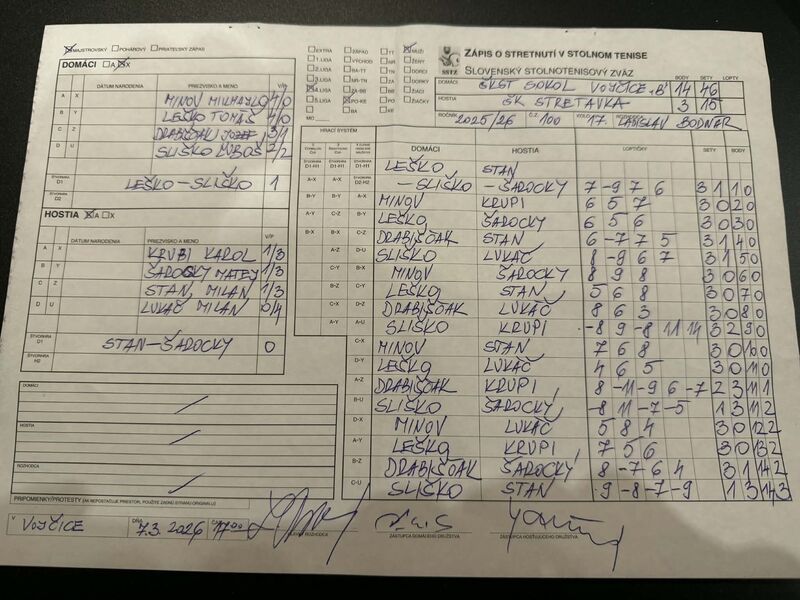 MAJSTROVSKÝ POHÁROVÝ PRIATEĽSKÝ ZÁPAS
ZÁPIS O STRETNUTÍ V STOLNOM TENISE
SLOVENSKÝ STOLNOTENISOVÝ ZVÄZ
SSTZ
EXTRA ZÁPAD TT MUŽI
1.LIGA VÝCHOD NR ŽENY
2.LIGA BA-TT TN DORCI
3.LIGA NR-TN ZA DORKY
4.LIGA ZA-BB BB ŽIACI
5.LIGA PO-KE PO ŽIAČKY
BA KE
DOMÁCI A X
DÁTUM NARODENIA PRIEZVISKO A MENO V/P
A X MINOV MICHAYLO 4/0
B Y LEŠKO TOMÁŠ 4/0
C Z DRABIŠČÁK JOZEF 3/1
D U SLIŠKO ĽUBOŠ 2/2
ŠTVORHRA D1 LEŠKO-SLIŠKO 1
ŠTVORHRA D2
HOSTIA A X
DÁTUM NARODENIA PRIEZVISKO A MENO V/P
A X KRUPI KAROL 1/3
B Y ŠAROCKY MATEJ 1/3
C Z STAN MILAN 1/3
D U LUKÁČ MILAN 0/4
ŠTVORHRA D1 STAN-ŠAROCKY 0
ŠTVORHRA H2
DOMÁCI
HOSTIA
ROZHODCA
PRIPOMIENKY/PROTESTY (AK NEPOSTAČUJE PRIESTOR, POUŽITE ZADNÚ STRANU ORIGINÁLU)
BODY SETY LOPTY
DOMÁCI ŠKST SOKOL VOJČICE "B" 14 46
HOSTIA ŠK STRETAVKA 3 15
ROČNÍK 2025/26 Č.Z. 100 KOLO 17. LADISLAV BODNÁR
HRACÍ SYSTÉM DOMÁCI HOSTIA LOPTIČKY SETY BODY
LEŠKO STAN
-SLIŠKO -ŠAROCKY 7 -9 7 6 3 1 1 0
MINOV KRUPI 6 5 7 3 0 2 0
LEŠKO ŠAROCKY 6 5 6 3 0 3 0
DRABIŠČÁK STAN 6 -7 7 5 3 1 4 0
SLIŠKO LUKÁČ 8 -9 6 7 3 1 5 0
MINOV ŠAROCKY 8 9 8 3 0 6 0
LEŠKO STAN 5 6 8 3 0 7 0
DRABIŠČÁK LUKÁČ 8 6 3 3 0 8 0
SLIŠKO KRUPI -8 9 -8 11 14 3 2 9 0
MINOV STAN 7 6 8 3 0 10 0
LEŠKO LUKÁČ 4 6 5 3 0 11 0
DRABIŠČÁK KRUPI 8 -11 -9 6 -7 2 3 11 1
SLIŠKO ŠAROCKY -8 11 -7 -5 1 3 11 2
MINOV LUKÁČ 5 8 4 3 0 12 2
LEŠKO KRUPI 7 5 6 3 0 13 2
DRABIŠČÁK ŠAROCKY 8 -7 6 4 3 1 14 2
SLIŠKO STAN -9 9 -7 -9 1 3 14 3
V VOJČICE DŇA 7.3.2026 ČAS 17:00
ZÁSTUPCA DOMÁCEHO DRUŽSTVA
ZÁSTUPCA HOSŤUJÚCEHO DRUŽSTVA